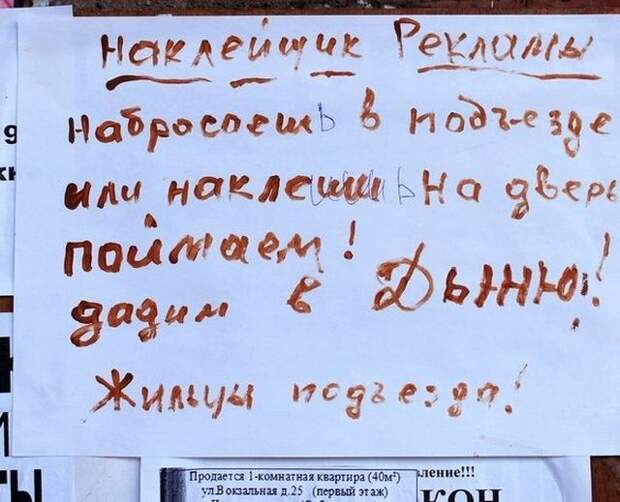 Наклейщик Рекламы
Набросаешь в подъезде
или наклеишь на дверь
поймаем!
дадим в Дыню!
Жильцы подъезда!
Продается 1-комнатная квартира (40м²)
ул.Вокзальная д.25 (первый этаж)
вление!!!
КОН